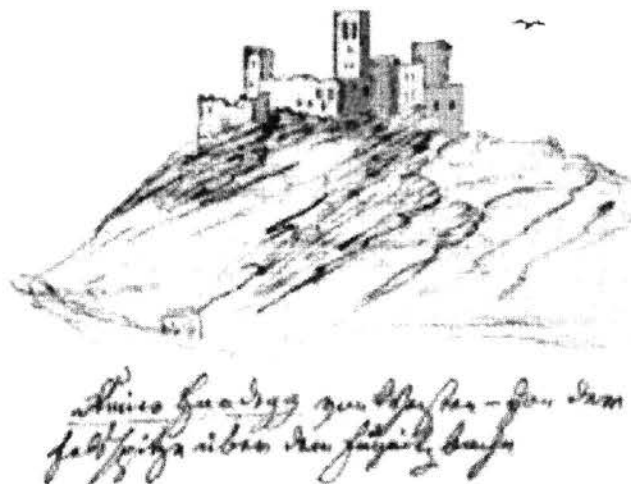 Ruine Hardegg von Westen – von der
Felsspitze über dem Fugnitzbache